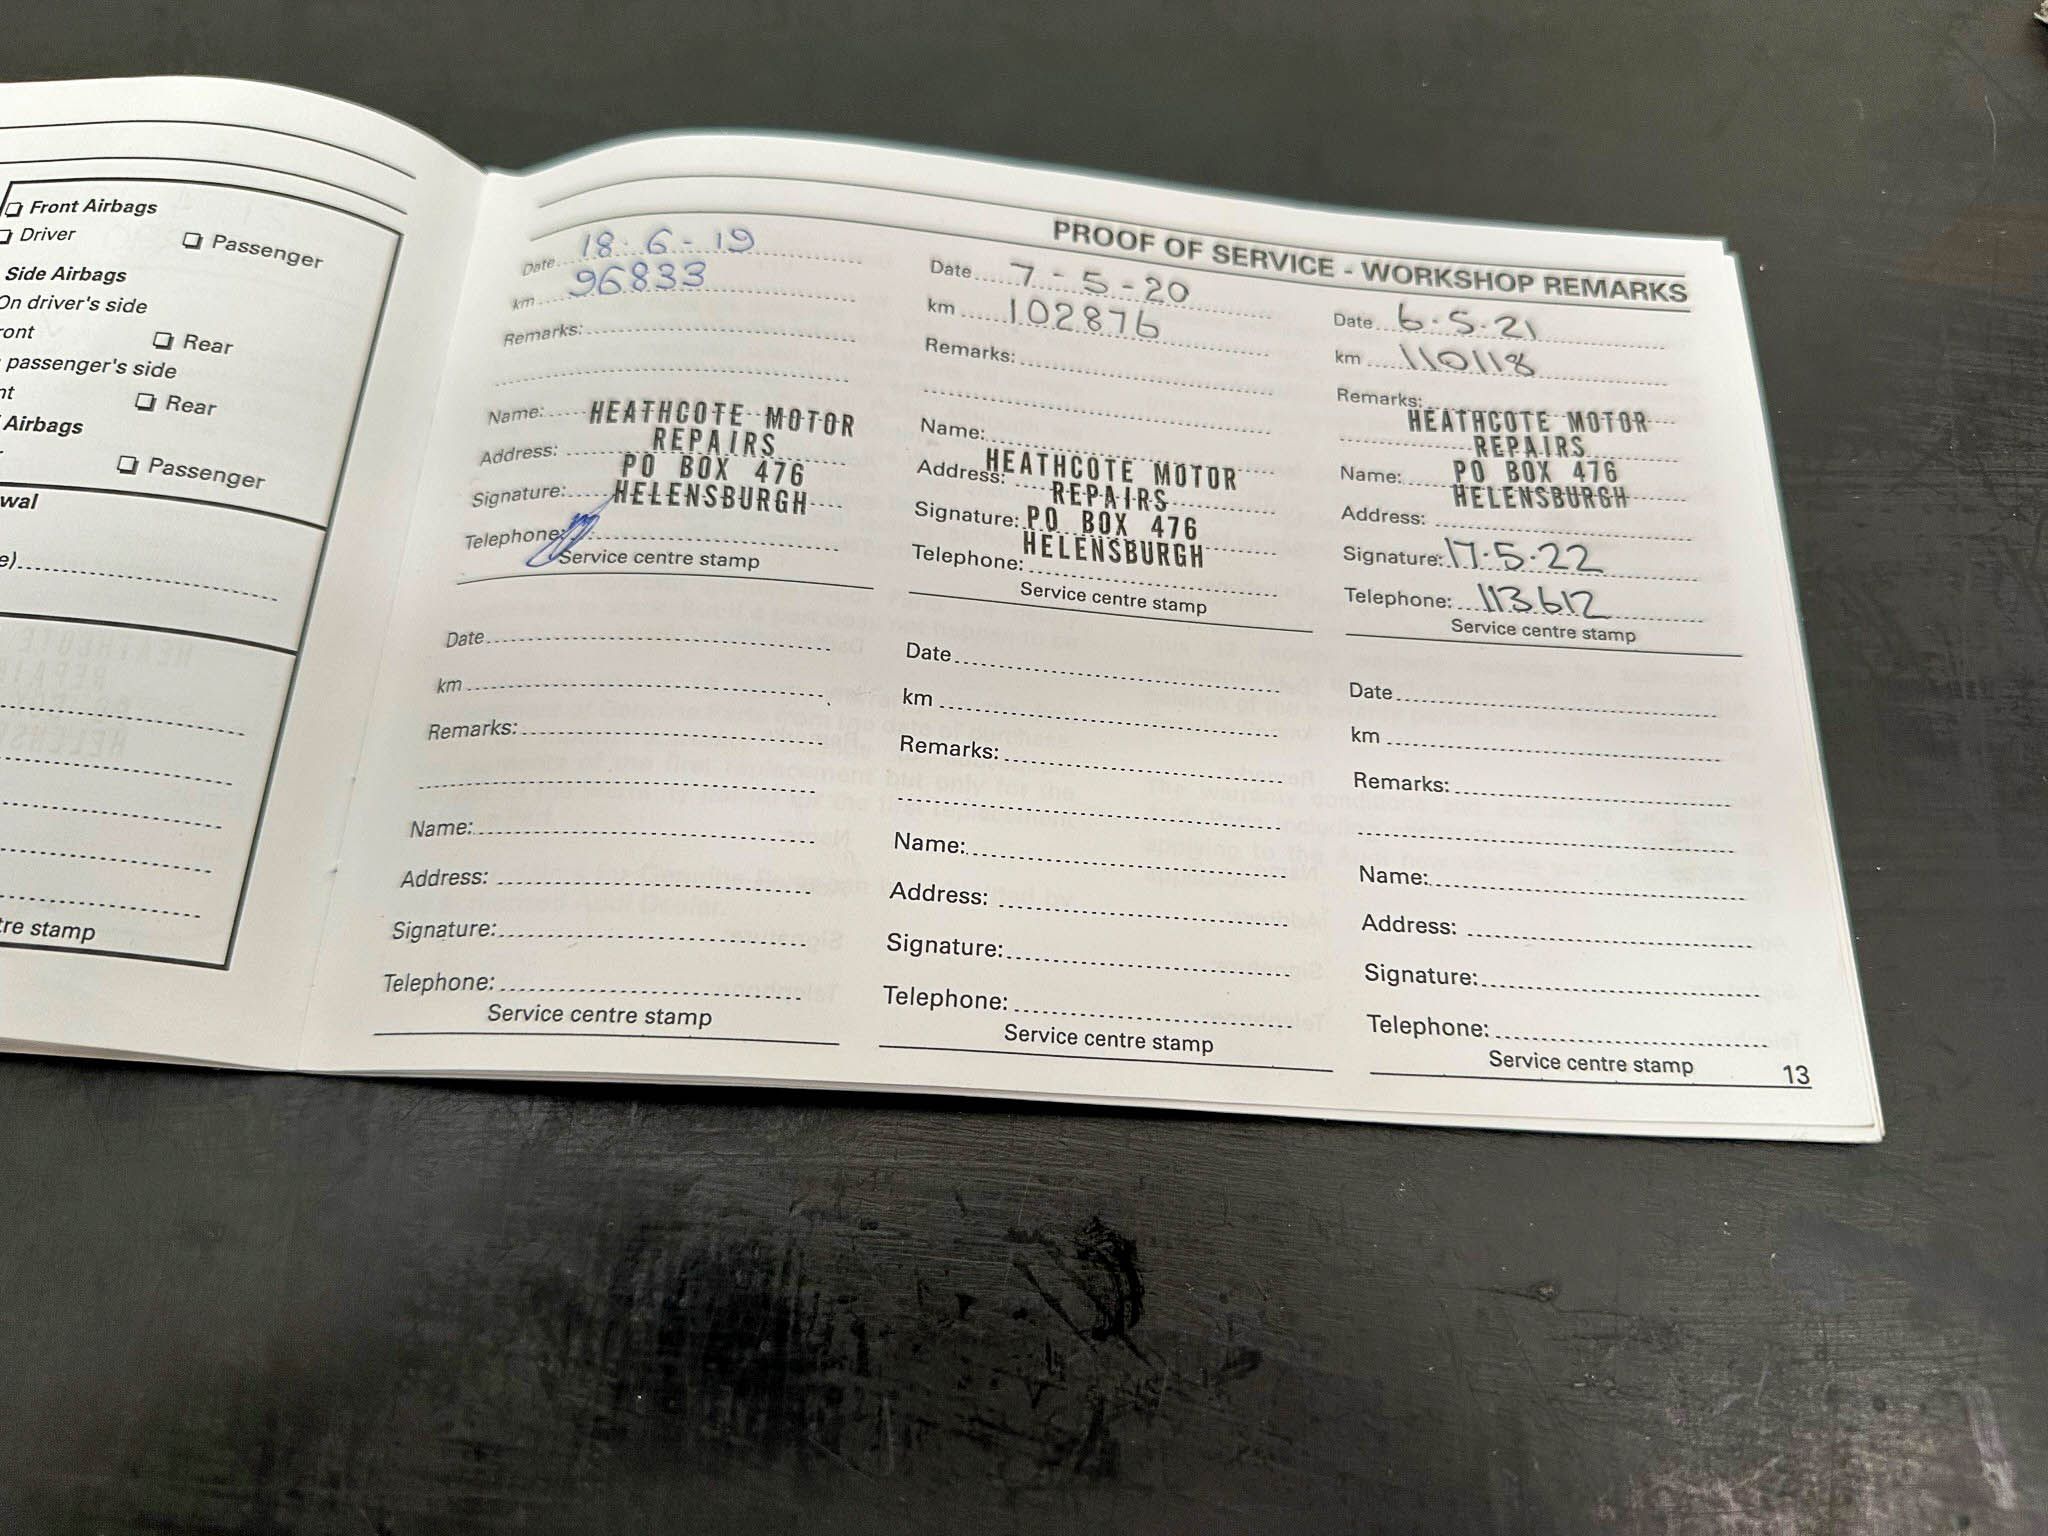 Front Airbags
Driver
Passenger
Side Airbags
On driver's side
Rear
passenger's side
Rear
Airbags
Passenger
stamp
PROOF OF SERVICE - WORKSHOP REMARKS
Date 18-6-19
km 96833
Remarks:
Name: HEATHCOTE MOTOR
REPAIRS
Address: PO BOX 476
Signature: HELENSBURGH
Telephone:
Service centre stamp
Date 7-5-20
km 102876
Remarks:
Name:
Address: HEATHCOTE MOTOR
REPAIRS
Signature: PO BOX 476
HELENSBURGH
Telephone:
Service centre stamp
Date 6.5.21
km 110118
Remarks:
HEATHCOTE MOTOR
REPAIRS
Name: PO BOX 476
HELENSBURGH
Address:
Signature: 17.5.22
Telephone: 113612
Service centre stamp
Date
km
Remarks:
Name:
Address:
Signature:
Telephone:
Service centre stamp
Date
km
Remarks:
Name:
Address:
Signature:
Telephone:
Service centre stamp
Date
km
Remarks:
Name:
Address:
Signature:
Telephone:
Service centre stamp
13